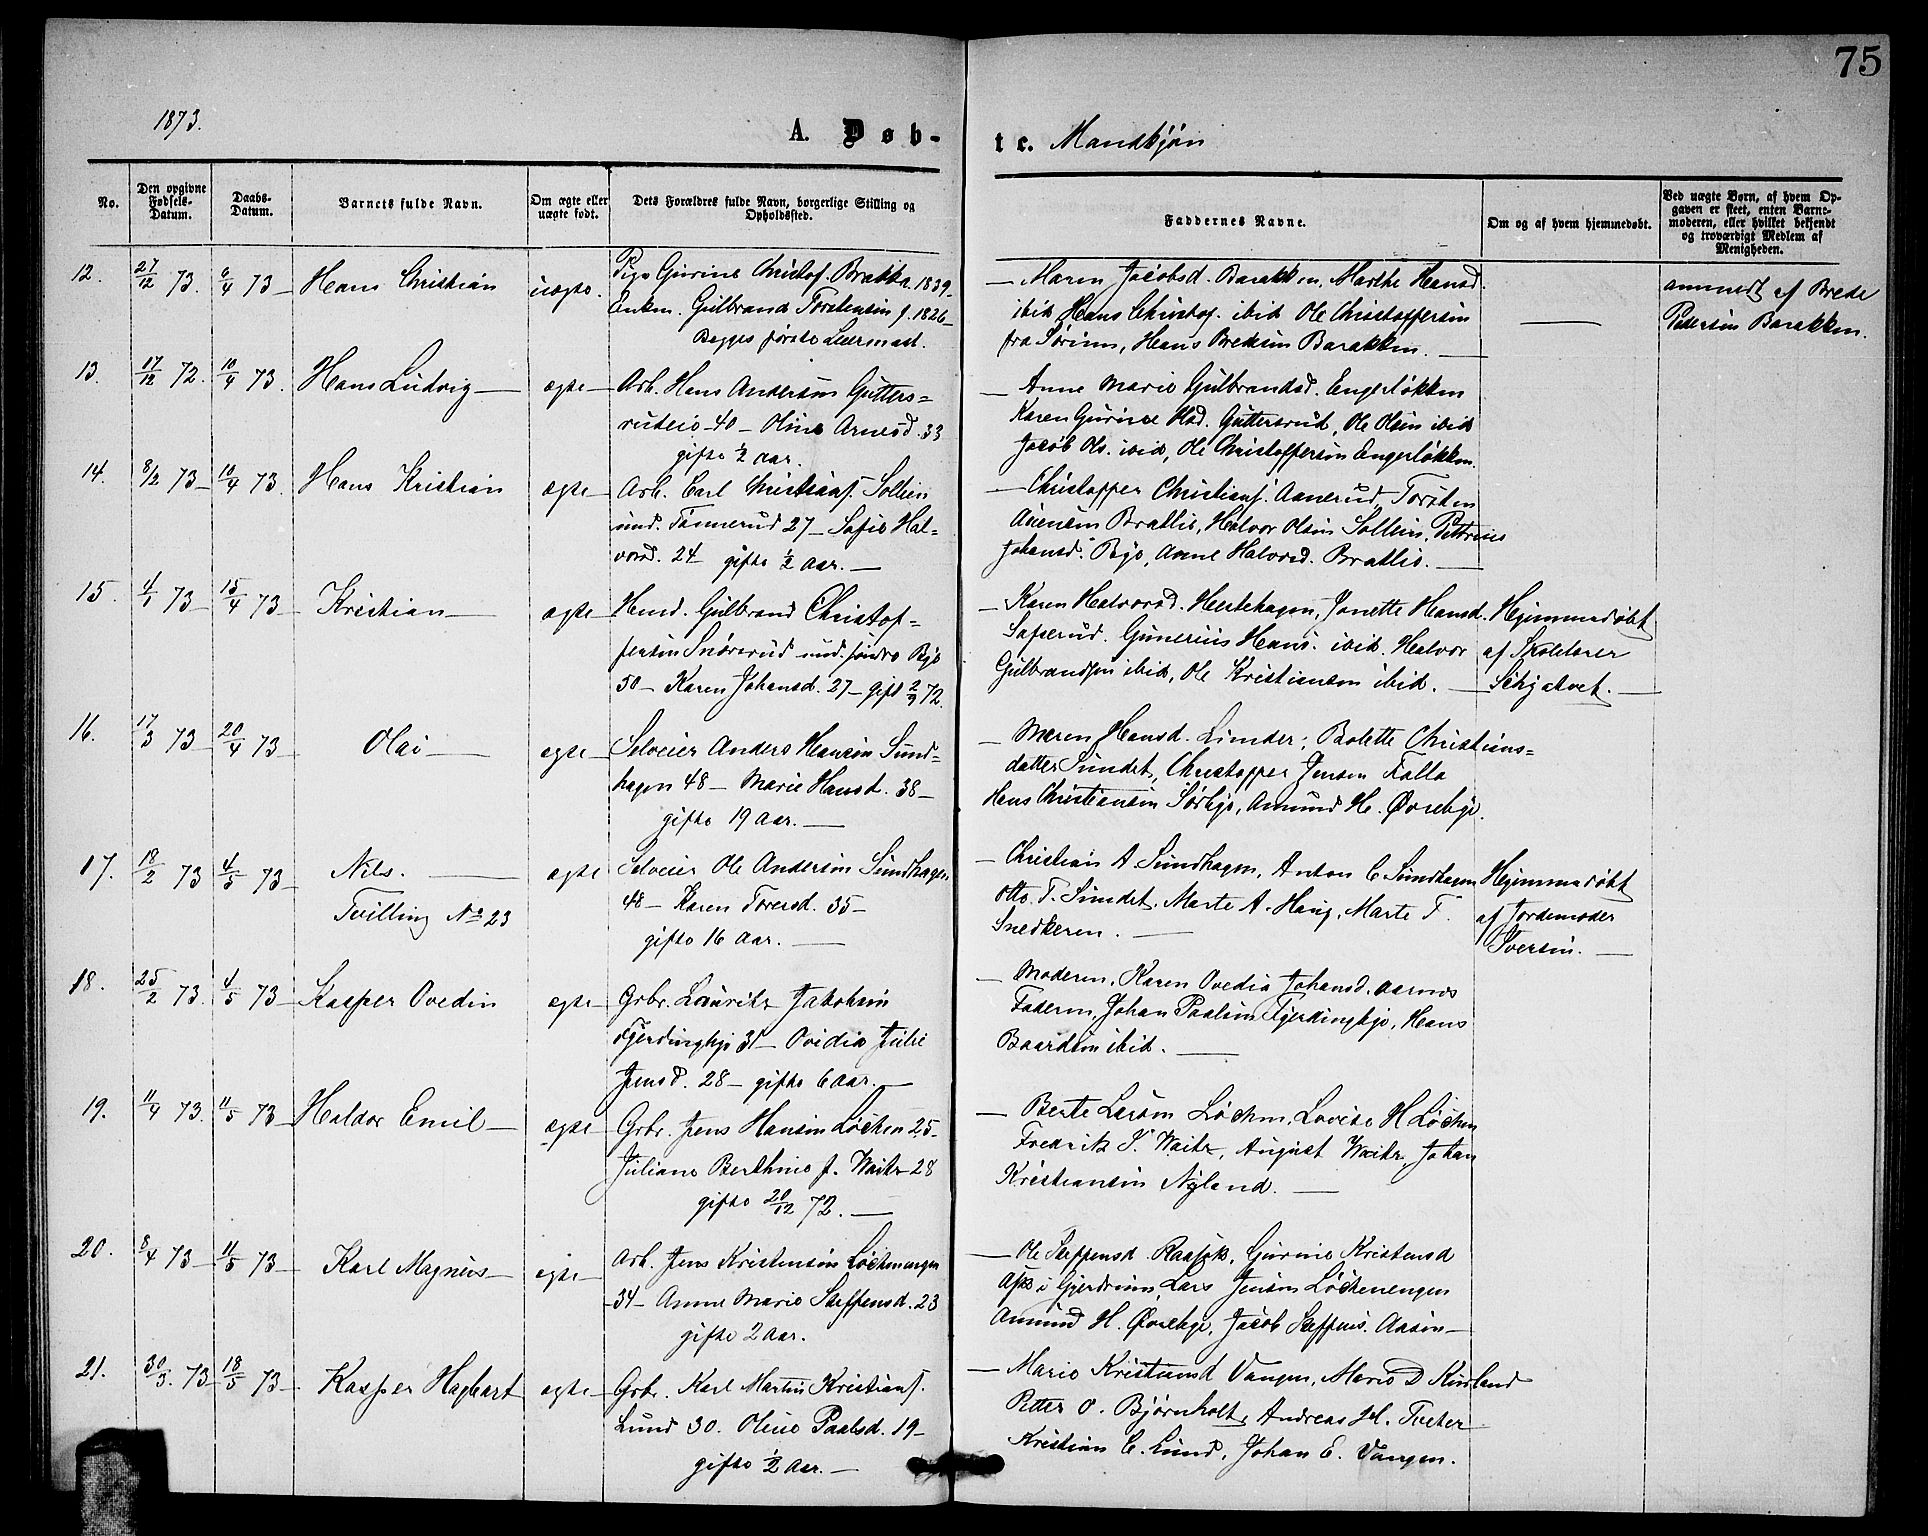 75
1873.
A. Døb-
te. Mandkjøn
No.
Den opgivne Fødsels-Datum.
Daabs-Datum.
Barnets fulde Navn.
Om ægte eller uægte født.
Dets Forældres fulde Navn, borgerlige Stilling og Opholdssted.
Faddernes Navne.
Om og af hvem hjemmedøbt.
Ved uægte Børn, af hvem Opgaven er skeet, enten Barnemoderen, eller hvilket bekjendt og troværdigt Medlem af Menigheden.
12. 27/12 73. 6/4 73 Hans Christian uægte. Pige Gurine Christof. Brakka 1839-
Enkm. Gulbrand Torstensen f. 1826-
Begges første Leiermaal.
Maren Jacobsd. Barakken, Marthe Hansd
ibid Hans Christof. ibid Ole Christoffersen
fra Sørum, Hans Bredesen Barakken.
anmeldt af Brede
Pedersen Barakken.
13. 17/12 72. 10/4 73. Hans Ludvig ægte Arb. Hans Andersen Gutters=
rudeie 40 - Oline Arnesd. 33
gifte 1/2 aar.
Anne Marie Gulbrandsd. Engerløkken
Karen Gurine Olsd. Guttersrud, Ole Olsen ibid
Jacob Ols. ibid, Ole Christoffersen Engerløkken.
14. 8/2 73 10/4 73. Hans Kristian ægte Arb. Carl Christians. Sollien
und. Tømmerud 27 - Sofie Hal=
vorsd. 24 gifte 1/2 aar.
Christopher Christians. Aanerud, Torsten
Evensen Bratlie, Halvor Olsen Sollien, Petterine
Johansd. Bye, Anne Halvorsd. Bratlie.
15. 4/1 73 15/4 73 Kristian ægte Husmd. Gulbrand Christof=
fersen Snørerud und. søndre Bye
50 - Karen Johansd. 27 - gift 2/9 72.
Karen Halvorsd. Hestehagen, Jonette Hansd.
Saferud. Gunerius Hans. ibid. Halvor
Gulbrandsen ibid, Ole Kristiansen ibid.
Hjemmedøbt
af Skolelærer
Schjatvet.
16. 17/3 73 20/4 73 Olai ægte Selveier Anders Hansen Sund=
hagen 48 - Marie Hansd. 38 -
gifte 19 aar.
Maren Hansd. Linder, Bolette Christians=
datter Sundet, Christopher Jensen Falla
Hans Christiansen Sørbye, Amund H. Øvrebye.
17. 18/2 73 4/5 73 Nils. ægte Selveier Ole Andersen Sundhagen
Tvilling No 23
48 - Karen Toresd. 35 -
gifte 16 aar.
Christian A Sundhagen, Anton C Sundhagen
Otto T. Sundet. Marte A. Haug, Marte T.
Snedkeren.
Hjemmedøbt
af Jordemoder
Iversen.
18. 25/2 73. 4/5 73 Kasper Ovedin ægte Grbr. Lauritz Jakobsen
Fjerdingbye 31 - Ovidia Julie
Jensd. 28 - gifte 6 aar.
Moderen, Karen Ovedia Johansd. Aarnes
Faderen, Johan Paulsen Fjerdingbye, Hans
Baardsen ibid.
19. 11/4 73. 11/5 73 Haldor Emil ægte Grbr. Jens Hansen Løchen 25 -
Juliane Berthine f. Waitz 28
gifte 20/12 72.
Berte Larsen Løchen, Lovise H Løchen
Fredrik J. Waitz, August Waitz, Johan
Kristiansen Nyland.
20. 8/4 73 11/5 73 Karl Magnus ægte Arb. Jens Kristensen Løchenengen
34 - Anne Marie Steffensd. 23
gifte 2 aar.
Ole Steffensd. Raasok, Gurine Kristensd
Ask i Gjerdrum, Lars Jensen Løchenengen
Amund H. Øvrebye, Jacob Steffens. Aasen
21. 30/3. 73 18/5 73 Kasper Hagbart ægte Grbr. Karl Martin Kristians.
Lund 30. Oline Paalsd. 19 -
gifte 1/2 aar.
Marie Kristiansd Vangen, Marie D Kurland
Petter O. Bjørnholt, Andreas H. Tveter
Kristian C. Lund, Johan E. Vangen.